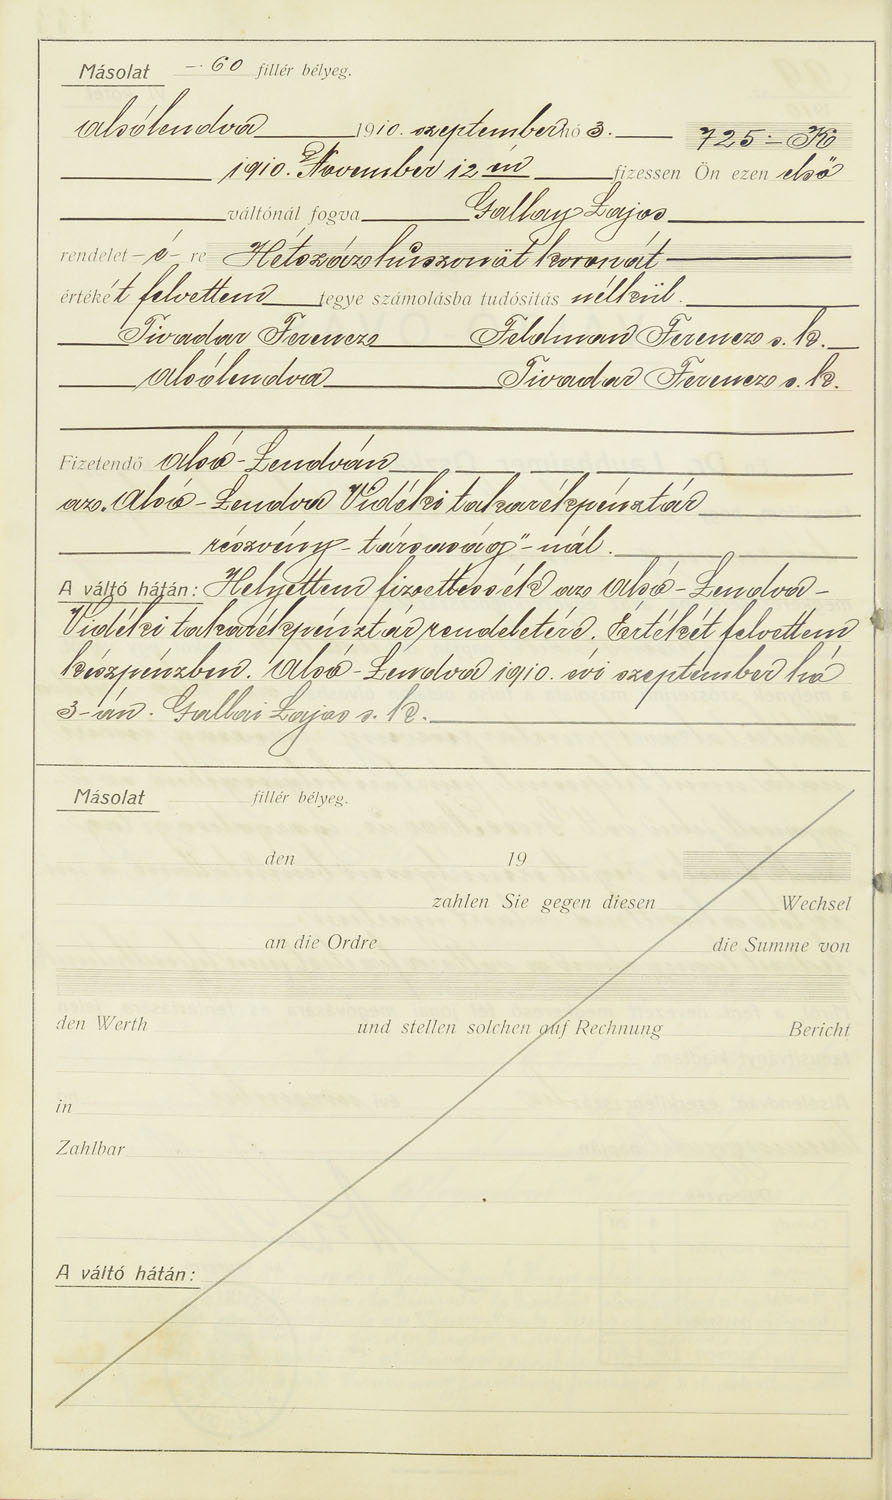 Másolat -·60 fillér bélyeg.
Alsólendva 1910. szeptember hó 3. 725·- K
1910. November 12 én fizessen Ön ezen első
váltónál fogva Gallay Lajos
rendelet-é-re Hétszázhuszonöt koronát
értéket felvettem tegye számolásba tudósítás nélkül.
Tivadar Ferencz Feldman Ferencz s. k.
Alsólendva Tivadar Ferencz s. k.
Fizetendő Alsó-Lendván
az „Alsó-Lendva Vidéki takarékpénztár
részvény-társaság"-nál.
A váltó hátán: Helyettem fizettessék az Alsó-Lendva-
Vidéki takarékpénztár rendeletére. Értékét felvettem
készpénzben. Alsó-Lendva 1910. évi szeptember hó
3-án. Gallai Lajos s. k.
Másolat fillér bélyeg.
den 19
zahlen Sie gegen diesen Wechsel
an die Ordre die Summe von
den Werth und stellen solchen auf Rechnung Bericht
in
Zahlbar
A váltó hátán: